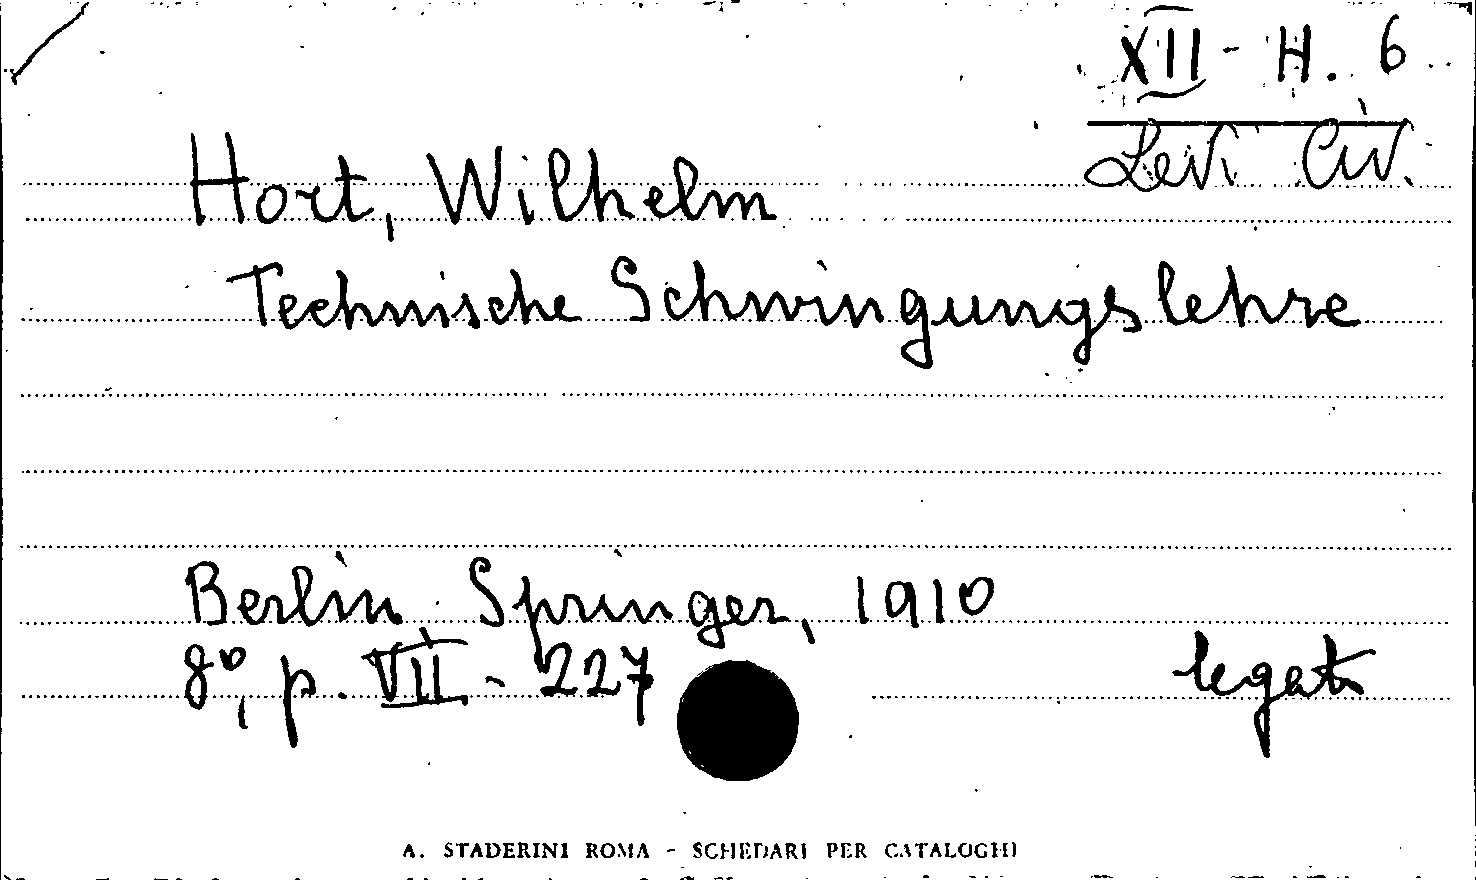 XII - H. 6
Levi Civ.
Hort, Wilhelm
Technische Schwingungslehre
Berlin, Springer, 1910
8º, p. VII - 227
legato
A. STADERINI ROMA - SCHEDARI PER CATALOGHI